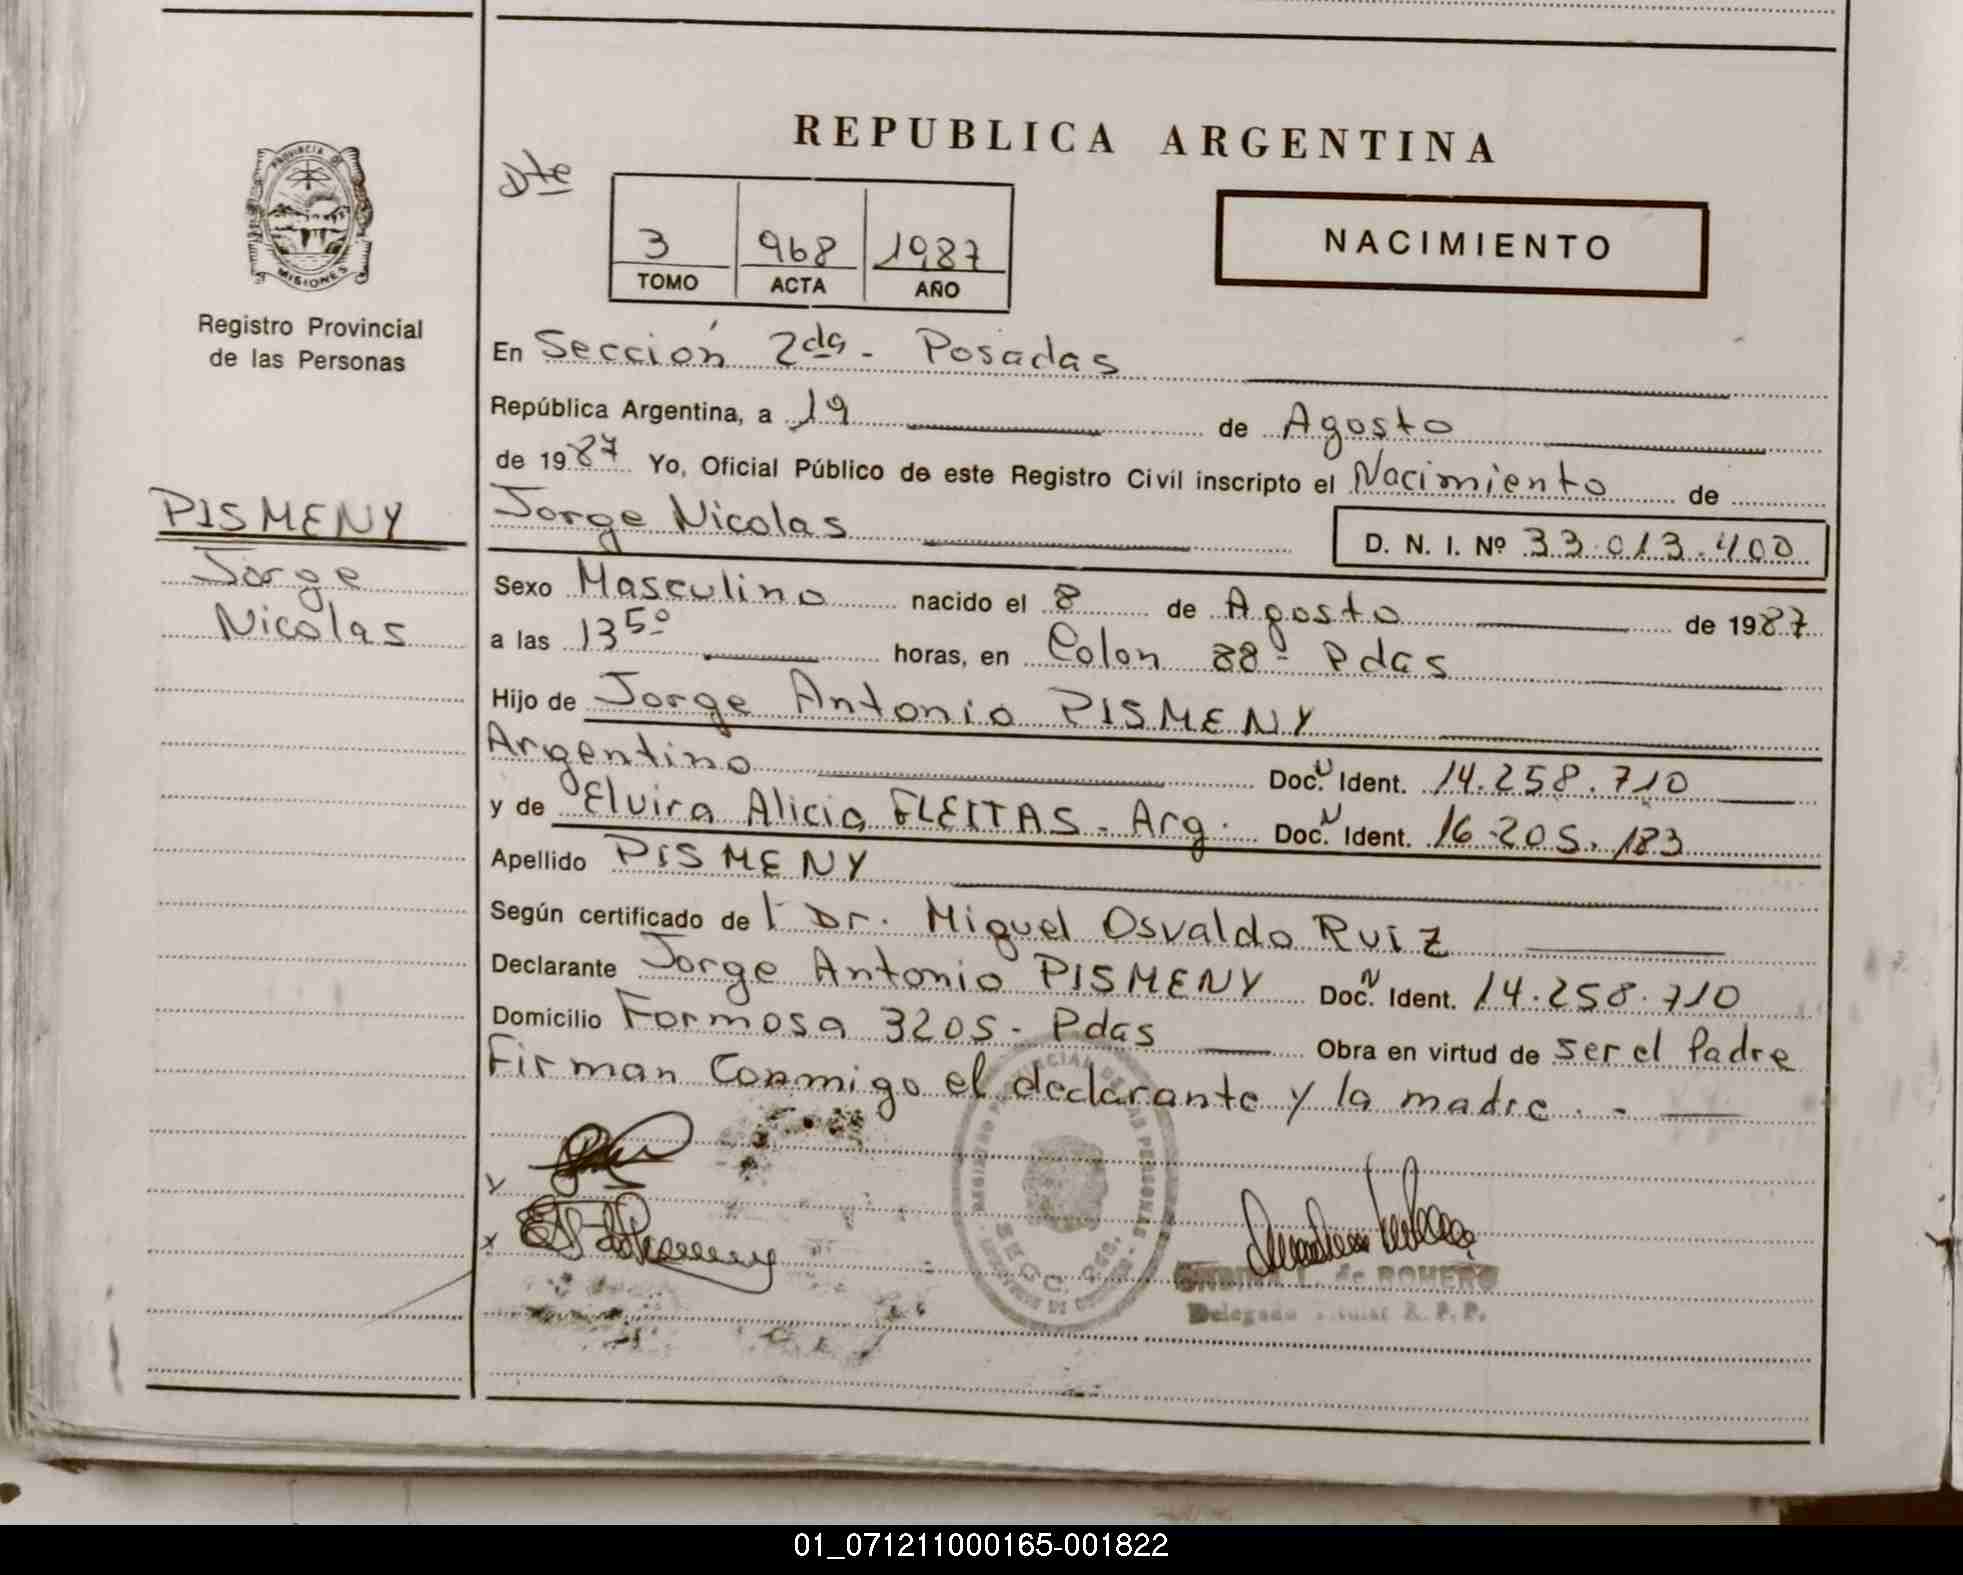 REPUBLICA ARGENTINA
PROVINCIA DE
MISIONES
Registro Provincial
de las Personas
Dte
3 968 1987
TOMO ACTA AÑO
NACIMIENTO
En Sección 2da - Posadas
República Argentina, a 19 de Agosto
de 1987 Yo, Oficial Público de este Registro Civil inscripto el Nacimiento de
PISMENY
Jorge
Nicolas
Jorge Nicolas D. N. I. Nº 33.013.400
Sexo Masculino nacido el 8 de Agosto de 1987
a las 13 50 horas, en Colon 88 - Pdas
Hijo de Jorge Antonio PISMENY
Argentino Doc. N Ident. 14.258.710
y de Elvira Alicia FLEITAS - Arg. Doc. N Ident. 16.205.183
Apellido PISMENY
Según certificado de l Dr. Miguel Osvaldo Ruiz
Declarante Jorge Antonio PISMENY Doc. N Ident. 14.258.710
Domicilio Formosa 3205 - Pdas Obra en virtud de ser el Padre
Firman Conmigo el declarante y la madre. -
x
de ROMERO
R. P. P.
01_071211000165-001822